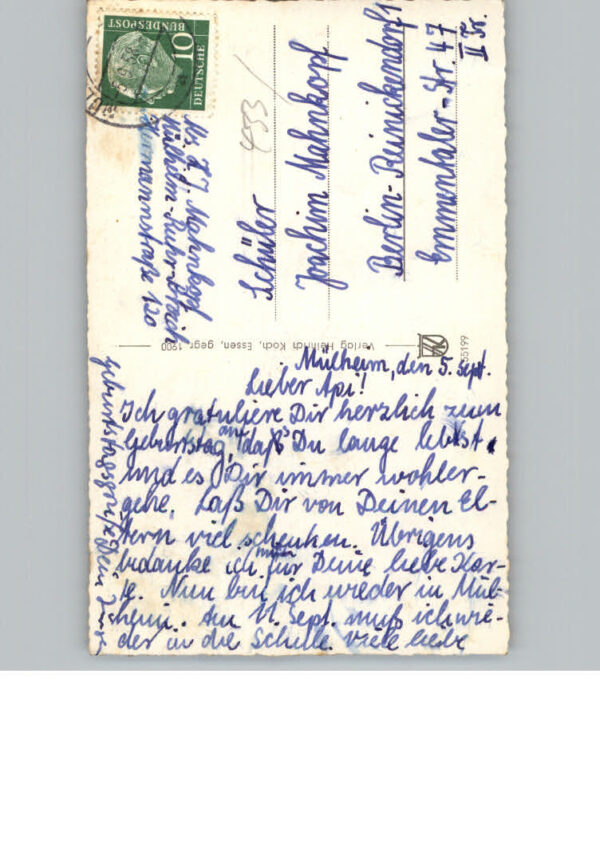 10
DEUTSCHE
BUNDESPOST
Mahnkopf
Mülheim-Ruhr-Broich
120
Schüler
433
Joachim Mahnkopf
Berlin-Reinickendorf 1
Emmentaler-Str. 47
II Tr.
Verlag Heinrich Koch, Essen, gegr. 1900
55199
Mülheim, den 5. Sept.
Lieber Api!
Ich gratuliere Dir herzlich zum
Geburtstag, daß Du lange lebst.
und es Dir immer wohler-
gehe. Laß Dir von Deinen El-
tern viel schenken. Übrigens
bedanke ich für Deine liebe Kar-
te. Nun bin ich wieder in Mül-
heim. Am 11. Sept. muß ich wie-
der in die Schule. Viele liebe
Geburtstagsgrüße Dein